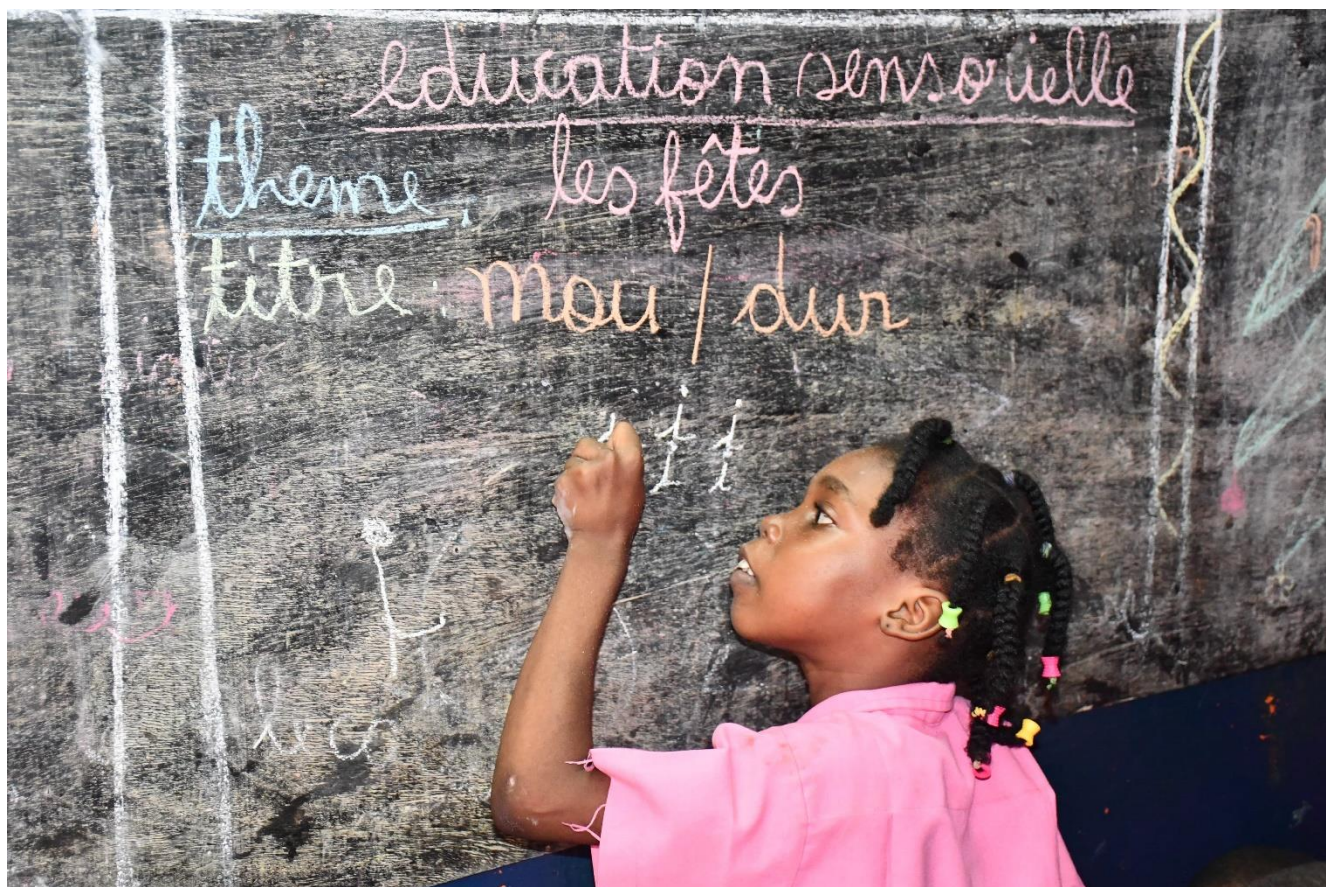 education sensorielle
theme : les fêtes
titre : mou / dur
i i